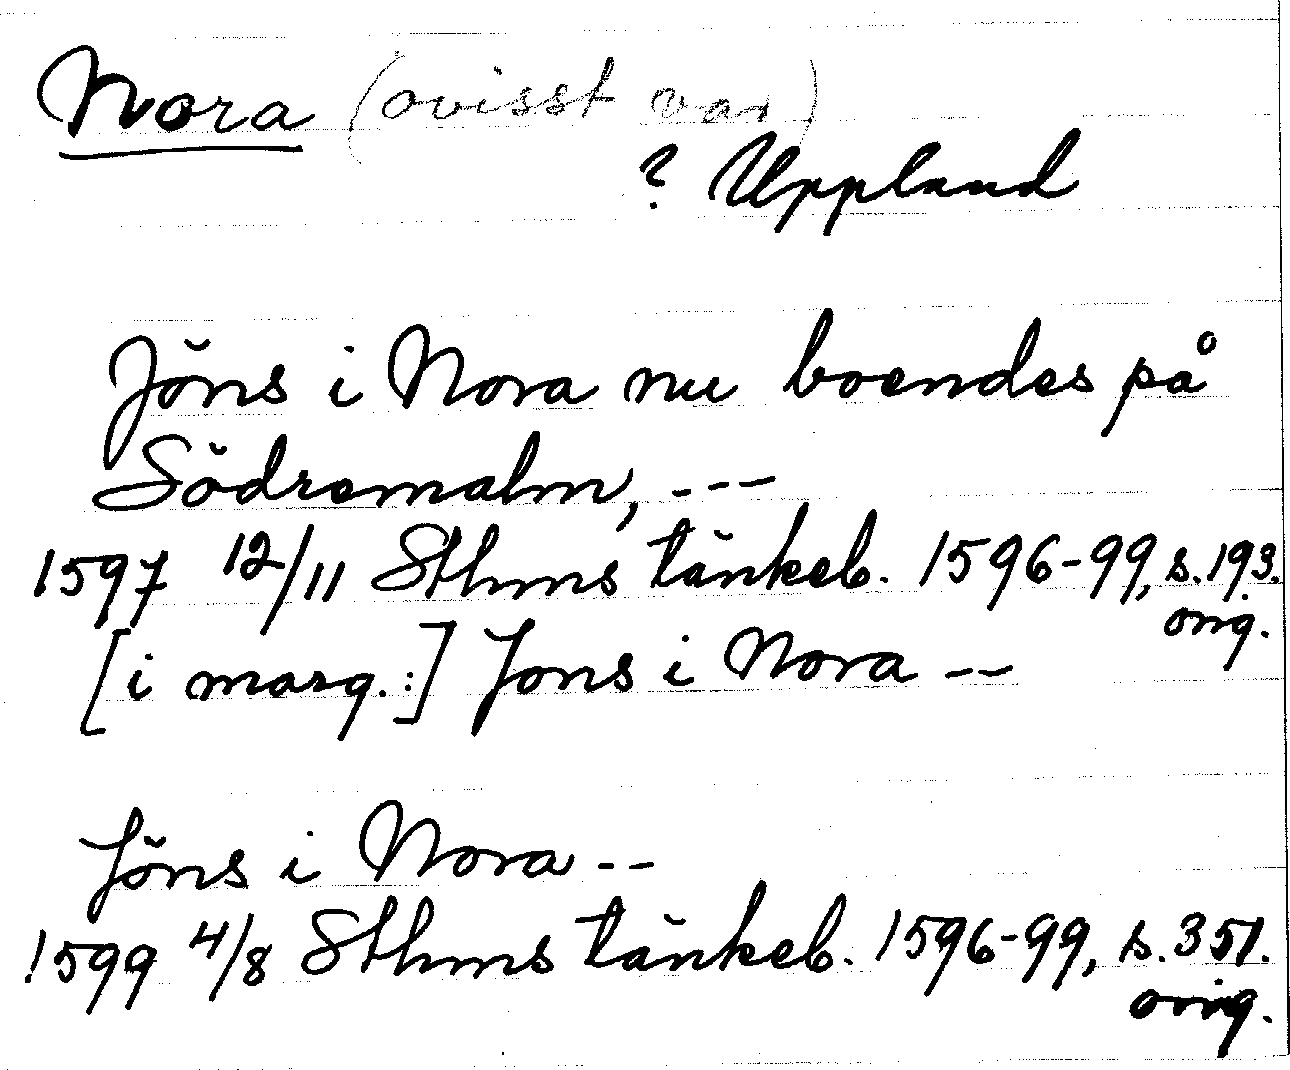 Nora (ovisst var)
? Uppland
Jöns i Nora nu boendes på
Södremalm, ---
1597 12/11 Sthms tänkeb. 1596-99, s. 193.
orig.
[i marg.:] Jons i Nora --
Jöns i Nora --
1599 4/8 Sthms tänkeb. 1596-99, s. 351.
orig.